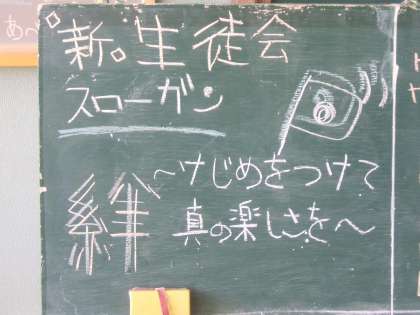 新生徒会
スローガン
絆 〜けじめをつけて
真の楽しさを〜